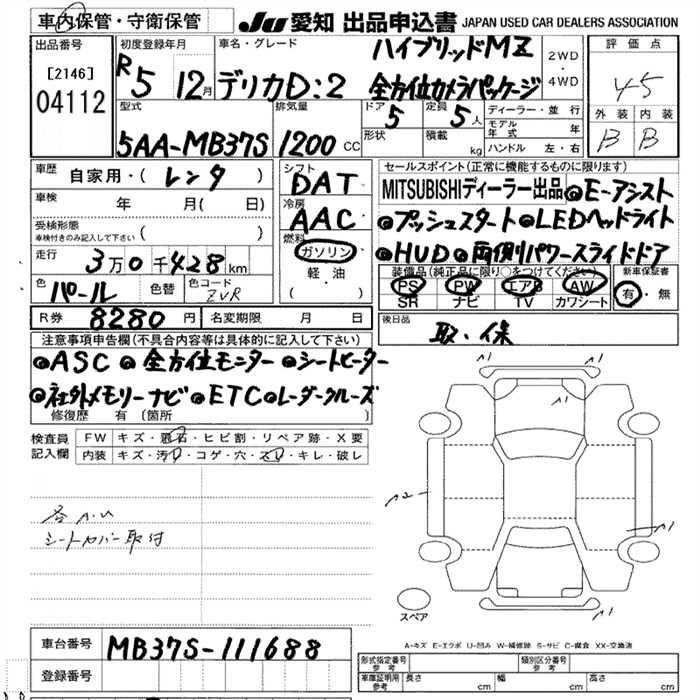 車内保管・守衛保管
JU 愛知 出品申込書 JAPAN USED CAR DEALERS ASSOCIATION
出品番号
[2146]
04112
初度登録年月
R5 12月
車名・グレード
ハイブリッドMZ
デリカD:2 全方位カメラパッケージ
2WD
4WD
評価点
4.5
外装 内装
B B
型式
5AA-MB37S
排気量
1200 CC
ドア
5
形状
定員
5人
積載 kg
ディーラー・並行
モデル年式 年
ハンドル 左・右
車歴
自家用・(レンタ)
車検 年 月( 日)
受検形態
車検付きのみ記入して下さい ( )
走行
3万0千428km
色
パール
色替
色コード
ZVR
シフト
DAT
冷房
AAC
燃料
ガソリン
軽・油
( )
セールスポイント(正常に機能するものに限ります)
MITSUBISHIディーラー出品 ●E-アシスト
●プッシュスタート ●LEDヘッドライト
●HUD ●両側パワースライドドア
装備品(純正品に限り○をつけてください)
PS PW エアB AW
SR ナビ TV カワシート
新車保証書
有・無
R券 8280円 名変期限 月 日
後日品
取・保
注意事項申告欄(不具合内容等は具体的に記入して下さい)
●ASC ●全方位モニター ●シートヒーター
●社外メモリーナビ ●ETC ●レーダークルーズ
修復歴 有(箇所
検査員記入欄
FW キズ・飛石・ヒビ割・リペア跡・X要
内装 キズ・汚れ・コゲ・穴・スレ・キレ・破レ
シートカバー取付
A1
A1
A1
A2
A1
A1
スペア
A-キズ E-エクボ U-凹み W-補修跡 S-サビ C-腐食 XX-交換済
車台番号 MB37S-111688
登録番号
形式指定番号
参考
類別区分番号
参考
車庫証明用
参考
長さ cm 幅 cm 高さ cm